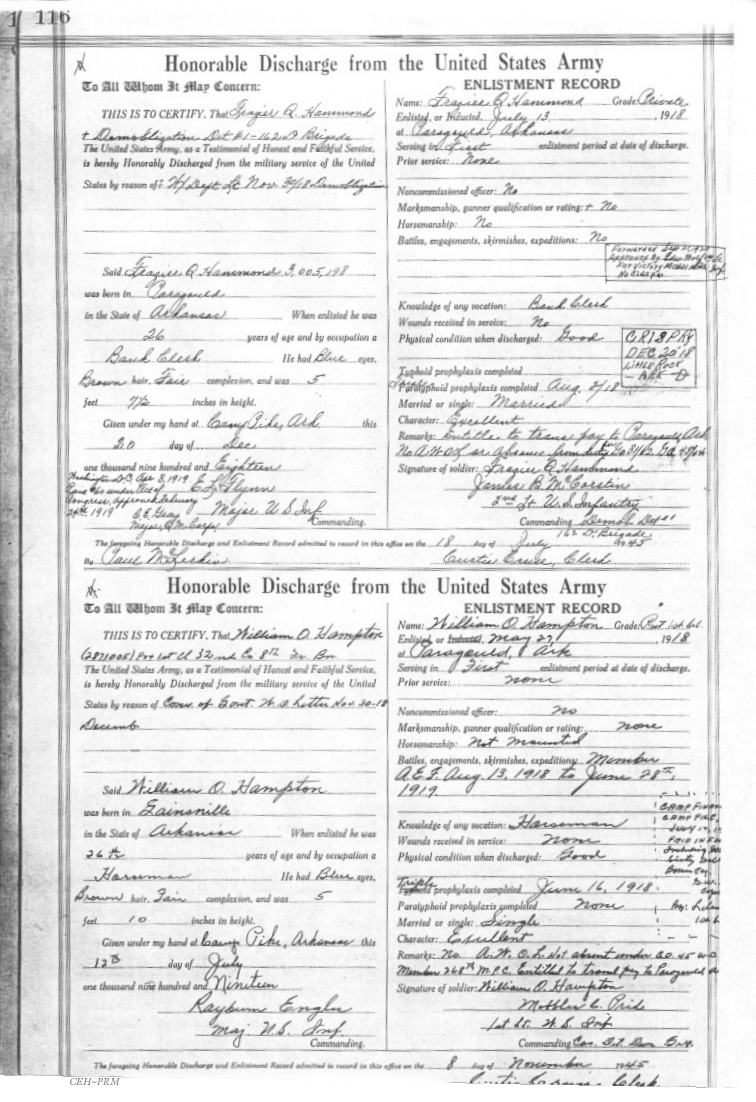 116
Honorable Discharge from the United States Army
To All Whom It May Concern:
THIS IS TO CERTIFY, That Frazier Q. Hammond
Demobligation Det #1-162 D Brigade
The United States Army, as a Testimonial of Honest and Faithful Service,
is hereby Honorably Discharged from the military service of the United
States by reason of: W/Dept Lt Nov. 30/18 Demobligation
Said Frazier Q. Hammond 3,005,198
was born in Paragould
in the State of Arkansas When enlisted he was
26 years of age and by occupation a
Bank Clerk He had Blue eyes,
Brown hair, Fair complexion, and was 5
feet 7 1/2 inches in height.
Given under my hand at Camp Pike, Ark this
20 day of Dec
one thousand nine hundred and Eighteen
Washington D.C. Apr 8, 1919 E. L. Flynn
Paid $60 under Act of
Congress, approved February
24th 1919 Major U S Inf
Commanding.
Major, Q M Corps
ENLISTMENT RECORD
Name: Frazier Q Hammond Grade: Private
Enlisted, or Inducted, July 13, 1918
at Paragould, Arkansas
Serving in First enlistment period at date of discharge.
Prior service: None
Noncommissioned officer: No
Marksmanship, gunner qualification or rating: No
Horsemanship: No
Battles, engagements, skirmishes, expeditions: No
Forwarded Sep
Approved by
For Victory Medal
No Clasps
Knowledge of any vocation: Bank Clerk
Wounds received in service: No
Physical condition when discharged: Good
CRISPRY
DEC 20 '18
LITTLE ROCK
- ARK -
Typhoid prophylaxis completed
Paratyphoid prophylaxis completed Aug. 2/18
Married or single: Married
Character: Excellent
Remarks: Entitle to trans pay to Paragould, Ark
No A W O L or absence from duty
Signature of soldier: Frazier Q. Hammond
James B. McCorstin
2nd Lt U.S. Infantry
Commanding Demob Det
162 D. Brigade
The foregoing Honorable Discharge and Enlistment Record admitted to record in this office on the 18 day of July 1945
By Paul McLerkin Clerk
Honorable Discharge from the United States Army
To All Whom It May Concern:
THIS IS TO CERTIFY, That William O. Hampton
(2821005) Pvt 1st Cl 32nd Co 8th Tr Bn
The United States Army, as a Testimonial of Honest and Faithful Service,
is hereby Honorably Discharged from the military service of the United
States by reason of Conv. of Govt. W. D. Letter Nov. 30-18
Decumb
Said William O. Hampton
was born in Gainsville
in the State of Arkansas When enlisted he was
26th years of age and by occupation a
Horseman He had Blue eyes,
Brown hair, Fair complexion, and was 5
feet 10 inches in height.
Given under my hand at Camp Pike, Arkansas this
12th day of July
one thousand nine hundred and Nineteen
Rayburn Engler
Maj. U.S. Inf.
Commanding.
ENLISTMENT RECORD
Name: William O. Hampton Grade: Pvt 1st Cl.
Enlisted, or Inducted, May 27, 1918
at Paragould, Ark
Serving in First enlistment period at date of discharge.
Prior service: none
Noncommissioned officer: No
Marksmanship, gunner qualification or rating: none
Horsemanship: Not Mounted
Battles, engagements, skirmishes, expeditions: Member
A.E.F. Aug. 13, 1918 to June 28th,
1919.
CAMP FINAN
CAMP PIKE,
JULY 12, 1
PAID IN FU
Including
Sixty Doll
Bonus
Knowledge of any vocation: Horseman
Wounds received in service: none
Physical condition when discharged: Good
Triple
Typhoid prophylaxis completed June 16, 1918.
Paratyphoid prophylaxis completed None
Married or single: Single
Character: Excellent
Remarks: No A. W. O. L. Not absent under G.O. 45 W D
Member 268th M.P.C. Entitled to travel pay to Paragould
Signature of soldier: William O. Hampton
1st Lt. U.S. Inf
Commanding
The foregoing Honorable Discharge and Enlistment Record admitted to record in this office on the 8 day of November 1945
Clerk
CEH~PRM